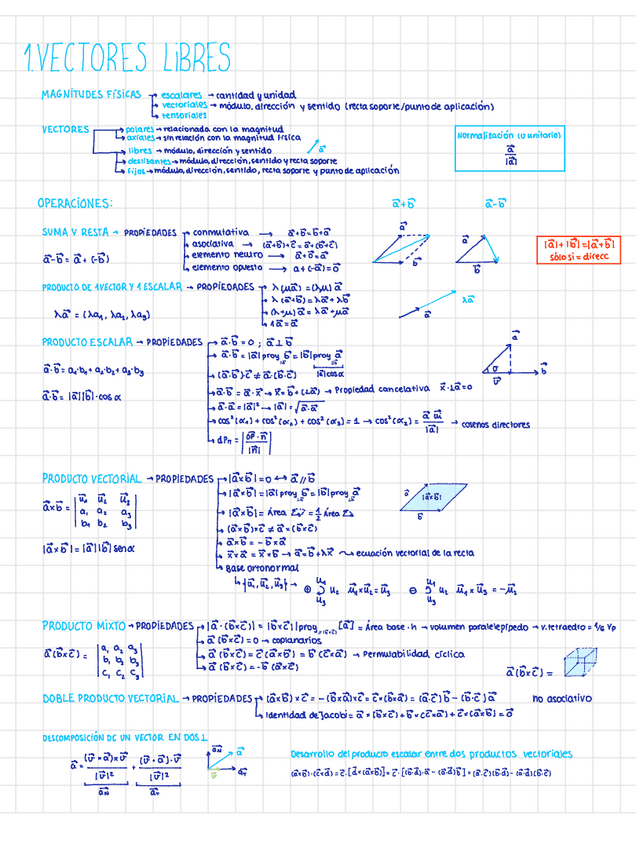 1. VECTORES LIBRES
MAGNITUDES FÍSICAS → escalares → cantidad y unidad
→ vectoriales → módulo, dirección y sentido (recta soporte/punto de aplicación)
→ tensoriales
VECTORES → polares → relacionada con la magnitud
→ axiales → sin relación con la magnitud física
→ libres → módulo, dirección y sentido
→ deslizantes → módulo, dirección, sentido y recta soporte
→ fijos → módulo, dirección, sentido, recta soporte y punto de aplicación
a⃗
Normalización (v unitario)
a⃗ / |a⃗|
OPERACIONES:
a⃗+b⃗ a⃗-b⃗
SUMA Y RESTA → PROPIEDADES → conmutativa → a⃗+b⃗=b⃗+a⃗
→ asociativa → (a⃗+b⃗)+c⃗=a⃗+(b⃗+c⃗)
a⃗-b⃗=a⃗+(-b⃗)
→ elemento neutro → a⃗+0⃗=a⃗
→ elemento opuesto → a+(-a⃗)=0⃗
a⃗ b⃗ a⃗ b⃗
|a⃗|+|b⃗|=|a⃗+b⃗|
sólo si = direcc
PRODUCTO DE 1 VECTOR Y 1 ESCALAR → PROPIEDADES → λ(μa⃗)=(λμ)a⃗
→ λ(a⃗+b⃗)=λa⃗+λb⃗
λa⃗=(λa₁, λa₂, λa₃)
→ (λ+μ)a⃗=λa⃗+μa⃗
→ 1a⃗=a⃗
a⃗ λa⃗
PRODUCTO ESCALAR → PROPIEDADES → a⃗·b⃗=0 ; a⃗⊥b⃗
→ a⃗·b⃗=|a⃗|proy b⃗=|b⃗|proy a⃗
|a⃗|cosα
a⃗·b⃗=a₁·b₁+a₂·b₂+a₃·b₃
→ (a⃗·b⃗)·c⃗≠a⃗·(b⃗·c⃗)
→ a⃗·b⃗=a⃗·x⃗→x⃗=b⃗+(⊥a⃗) → Propiedad cancelativa x⃗·⊥a⃗=0
a⃗·b⃗=|a⃗||b⃗|·cosα
→ a⃗·a⃗=|a⃗|²→|a⃗|=√a⃗·a⃗
→ cos²(α₁)+cos²(α₂)+cos²(α₃)=1 → → cosenos directores
a⃗ b⃗ v⃗
PRODUCTO VECTORIAL → PROPIEDADES → |a⃗×b⃗|=0 ↔ a⃗//b⃗
→ |a⃗×b⃗|=|a⃗|proy b⃗=|b⃗|proy a⃗
a⃗×b⃗ = | u⃗₁ u⃗₂ u⃗₃ |
| a₁ a₂ a₃ |
| b₁ b₂ b₃ |
→ (a⃗×b⃗)×c⃗≠a⃗×(b⃗×c⃗)
→ a⃗×b⃗=-b⃗×a⃗
|a⃗×b⃗|=|a⃗||b⃗|senα
→ ecuación vectorial de la recta
→ Base ortonormal
→ |u⃗₁, u⃗₂, u⃗₃| → ⊕ u₁ u₂ u₃ u⃗₁×u⃗₂=u⃗₃ ⊖ u₁ u₂ u₃ u⃗₁×u⃗₃=-u⃗₂
a⃗ |a⃗×b⃗| b⃗
PRODUCTO MIXTO → PROPIEDADES → |a⃗·(b⃗×c⃗)|=|b⃗×c⃗||proy [a⃗]= Área base·h → volumen paralelepípedo → v.tetraedro=1/6 Vp
→ a⃗(b⃗×c⃗)=0 → coplanarios
a⃗(b⃗×c⃗) = | a₁ a₂ a₃ |
| b₁ b₂ b₃ |
| c₁ c₂ c₃ |
→ a⃗(b⃗×c⃗)=c⃗(a⃗×b⃗)=b⃗(c⃗×a⃗) → Permutabilidad cíclica
→ a⃗(b⃗×c⃗)=-b⃗(a⃗×c⃗)
a⃗(b⃗×c⃗)=
DOBLE PRODUCTO VECTORIAL → PROPIEDADES → (a⃗×b⃗)×c⃗=-(b⃗×a⃗)×c⃗=c⃗×(b⃗×a⃗)=(a⃗·c⃗)b⃗-(b⃗·c⃗)a⃗ no asociativo
→ Identidad de Jacobi= a⃗×(b⃗×c⃗)+b⃗×(c⃗×a⃗)+c⃗×(a⃗×b⃗)=0⃗
DESCOMPOSICIÓN DE UN VECTOR EN DOS ⊥
a⃗ = (v⃗×a⃗)×v⃗ / |v⃗|² + (v⃗·a⃗)·v⃗ / |v⃗|²
Desarrollo del producto escalar entre dos productos vectoriales